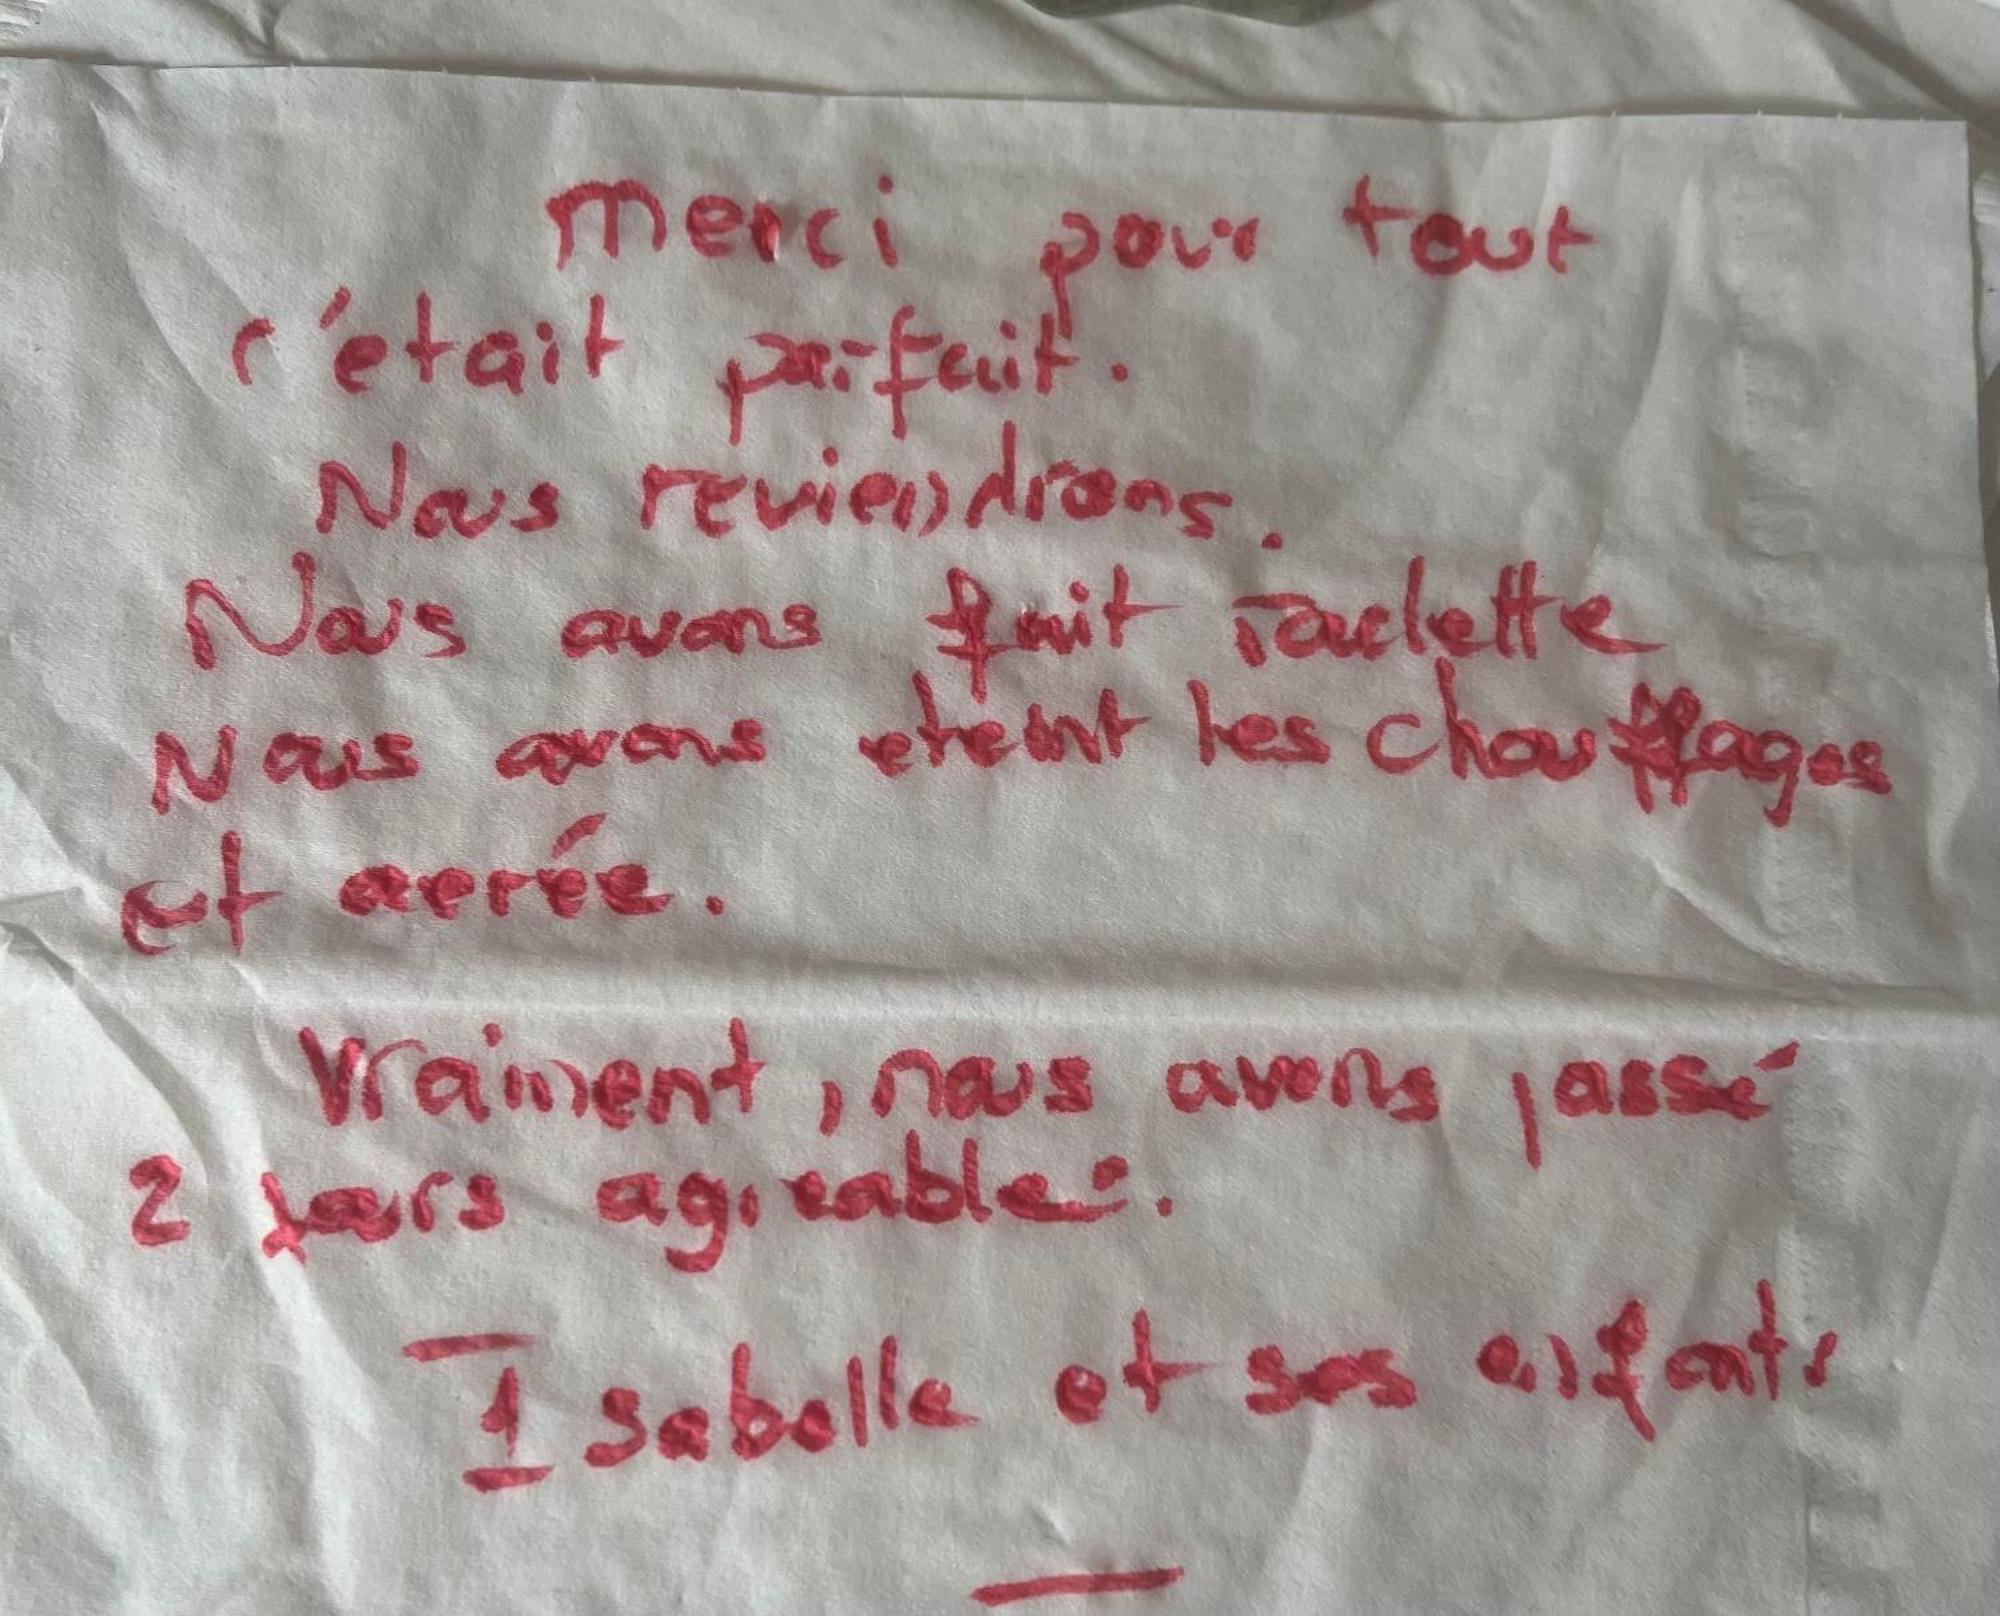 Merci pour tout
c'était parfait.
Nous reviendrons.
Nous avons fait raclette
Nous avons eteint les chauffages
et aerée.
Vraiment, nous avons passé
2 jours agréables.
Isabelle et ses enfants